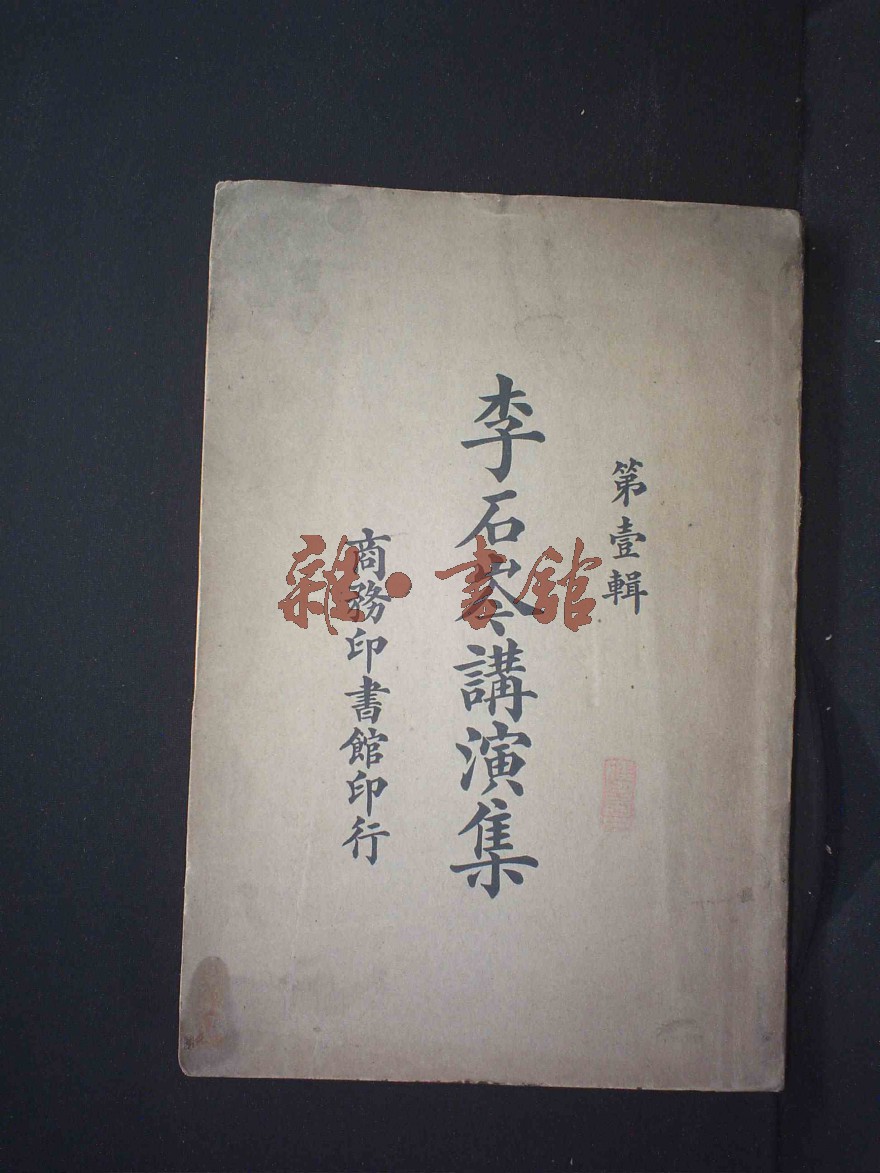 第壹輯
李石岑講演集
商務印書館印行
雜·書館